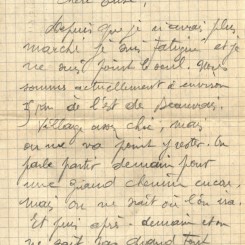 Chère Luise,
Depuis que je n'avais plus
marché je suis fatigué et je
ne suis point le seul. Nous
sommes actuellement à environ
de l'est de Beauvais.
Village assez chic, mais
on ne va point y rester. On
parle partir demain pour
une grand chemin encore
mais on ne sait où l'on ira.
Et puis après demain et on
ne sait pas quand tout